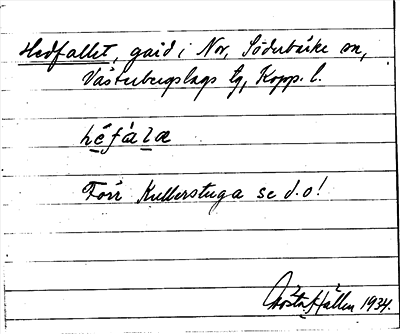 Hedfallet, gård i Nor, Söderbärke sn,
Västerbergslags tg, Kopp. l.
hêfàlæ
Förr Kullerstuga se d.o!
Gösta Hällen 1934.